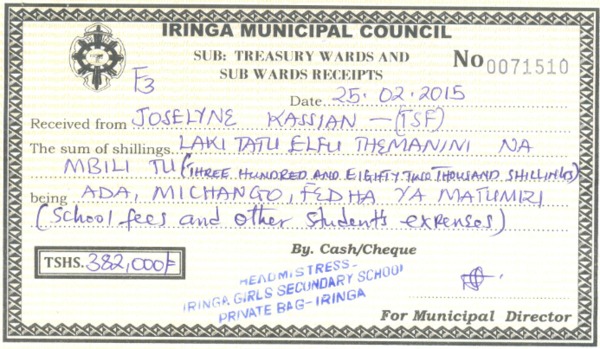 IRINGA MUNICIPAL COUNCIL
SUB: TREASURY WARDS AND
SUB WARDS RECEIPTS
No 0071510
F3
Date 25.02.2015
Received from JOSELYNE KASSIAN - (TSF)
The sum of shillings LAKI TATU ELFU THEMANINI NA
MBILI TU (THREE HUNDRED AND EIGHTY TWO THOUSAND SHILLINGS)
being ADA, MICHANGO, FEDHA YA MATUMIZI
(School fees and other students expenses)
By. Cash/Cheque
TSHS. 382,000/=
HEADMISTRESS-
IRINGA GIRLS SECUNDARY SCHOOL
PRIVATE BAG-IRINGA
For Municipal Director